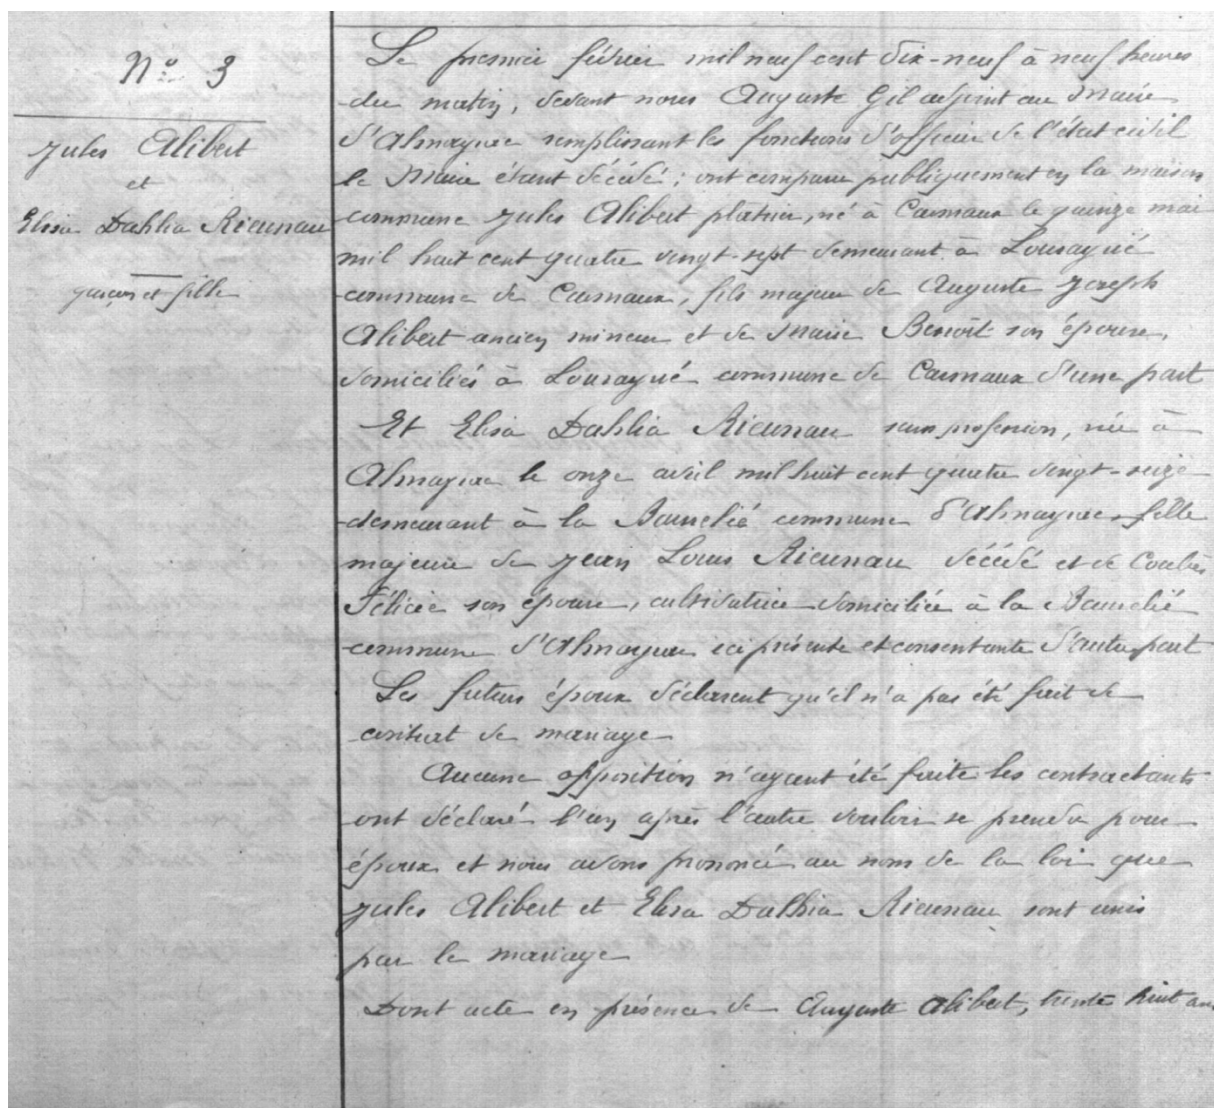 Nº 3
Jules Alibert
et
Elisa Dahlia Rieunau
garçon et fille
Le premier février mil neuf cent dix-neuf à neuf heures
du matin, devant nous Auguste Gil adjoint au Maire
d'Almayrac remplissant les fonctions d'officier de l'état civil
le Maire étant décédé ; ont comparu publiquement en la maison
commune Jules Alibert plâtrier, né à Carmaux le quinze mai
mil huit cent quatre vingt-sept demeurant à Lourayné
commune de Carmaux, fils majeur de Auguste Joseph
Alibert ancien mineur et de Marie Benoît son épouse,
domiciliés à Lourayné commune de Carmaux d'une part
Et Elisa Dahlia Rieunau sans profession, née à
Almayrac le onze avril mil huit cent quatre vingt-seize
demeurant à la Baurelié commune d'Almayrac fille
majeure de Jean Louis Rieunau décédé et de Combes
Félicie son épouse, cultivatrice domiciliée à la Baurelié
commune d'Almayrac ici présente et consentante d'autre part
Les futurs époux déclarent qu'il n'a pas été fait de
contrat de mariage
Aucune opposition n'ayant été faite les contractants
ont déclaré l'un après l'autre vouloir se prendre pour
époux et nous avons prononcé au nom de la loi que
Jules Alibert et Elisa Dalhia Rieunau sont unis
par le mariage
Dont acte en présence de Auguste Alibert, trente huit ans